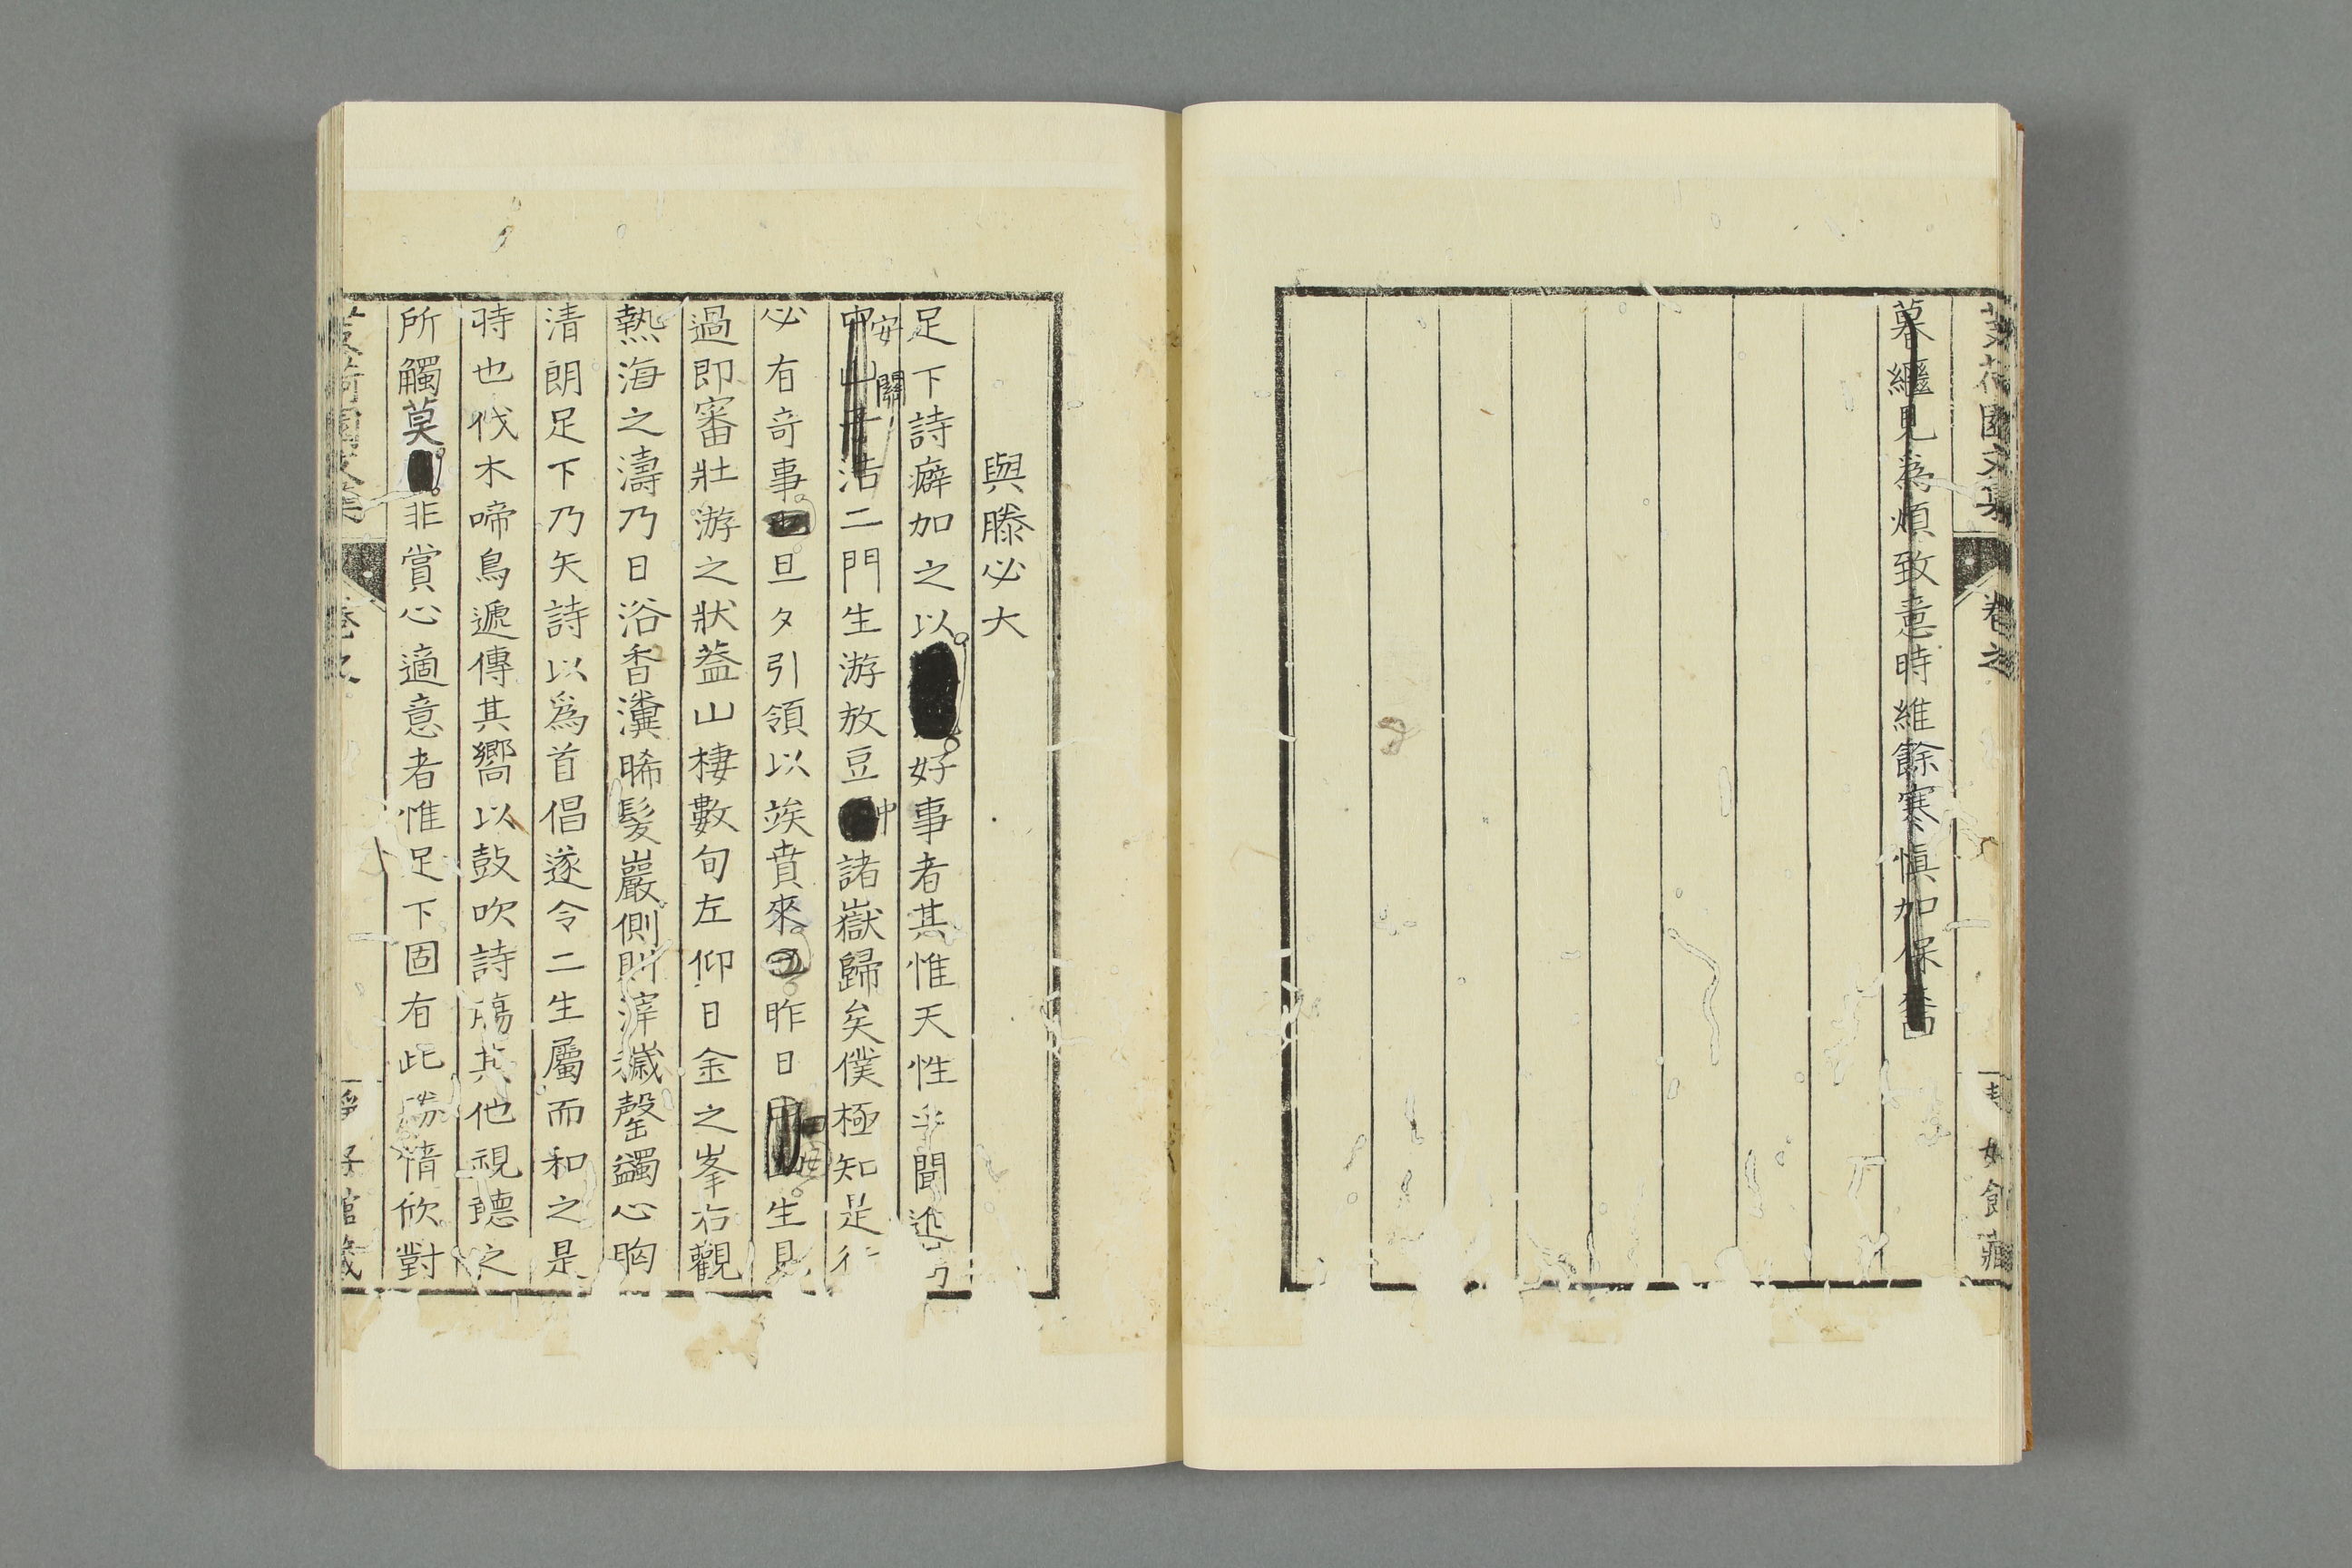 暮繼見為煩致意時維餘寒愼加保嗇
與滕必大
足下詩癖加之以好事者其惟天性乎聞
安關
中山子浩二門生游放豆
中
諸嶽歸矣僕極知是行
必有奇事旦夕引領以竢賁來昨日生見
過即審壯游之狀葢山棲數旬左仰日金之峯右觀
熱海之濤乃日浴香瀵晞髮巖側則滓濊罄蠲心胸
清朗足下乃矢詩以為首倡遂令二生屬而和之是
時也伐木啼鳥遞傳其嚮以鼓吹詩膓其他視聽之
所觸莫非賞心適意者惟足下固有此勝情欣對